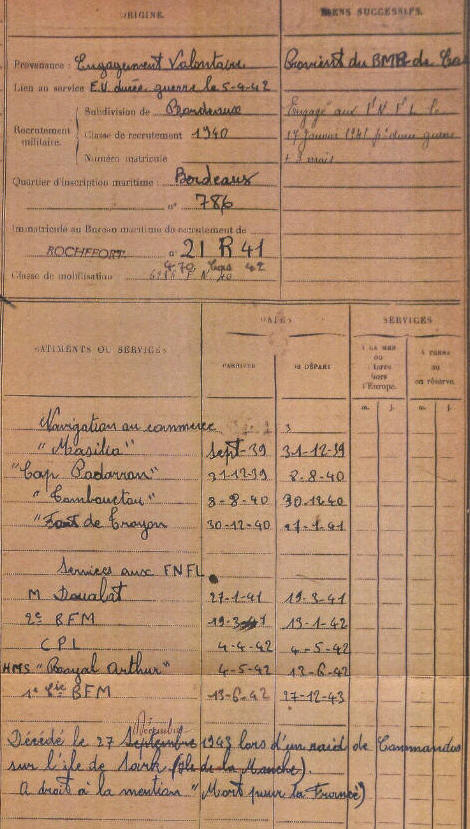 ORIGINE.
BIENS SUCCESSIFS.
Provenance : Engagement Volontaire
Provient du BMP. de
Lien au service E.V. durée guerre le 5-4-42
Subdivision de Bordeaux
Engagé aux F N F L le
Recrutement militaire.
Classe de recrutement 1940
17 Janvier 1941 pr durée guerre
Numéro matricule
+ 3 mois
Quartier d'inscription maritime : Bordeaux
n° 786
Immatriculé au Bureau maritime de recrutement de
ROCHEFORT. n° 21 R 41
Classe de mobilisation
DATES
SERVICES
BATIMENTS OU SERVICES
D'ARRIVÉE
DE DÉPART
A LA MER ou à terre hors d'Europe.
A TERRE ou en réserve.
m. j. m. j.
Navigation au commerce
"Masilia" Sept-39 31-12-39
"Cap Padaran" 31-12-39 8-8-40
"Tombouctou" 8-8-40 30-12-40
"Fort de Troyon" 30-12-40 27-1-41
Services aux FNFL.
M Douabat 27-1-41 19-3-41
2e BFM 19-3-41 13-1-42
CPL 4-4-42 4-5-42
HMS "Royal Arthur" 4-5-42 13-6-42
1e Cie BFM 13-6-42 27-12-43
Décembre
Décédé le 27 Septembre 1943 lors d'un raid de Commandos
sur l'île de Sark (Ile de la Manche).
A droit à la mention "Mort pour la France")